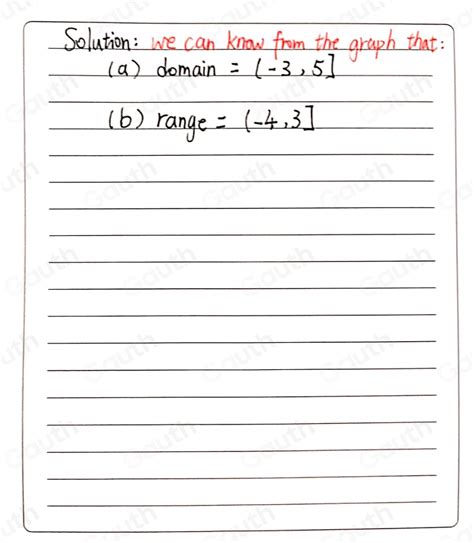 Solution: we can know from the graph that:
(a) domain = (-3, 5]
(b) range = (-4, 3]
Gauth
Gauth
Gauth
Gauth
Gauth
Gauth
Gauth
Gauth
Gauth
Gauth
Gauth
Gauth